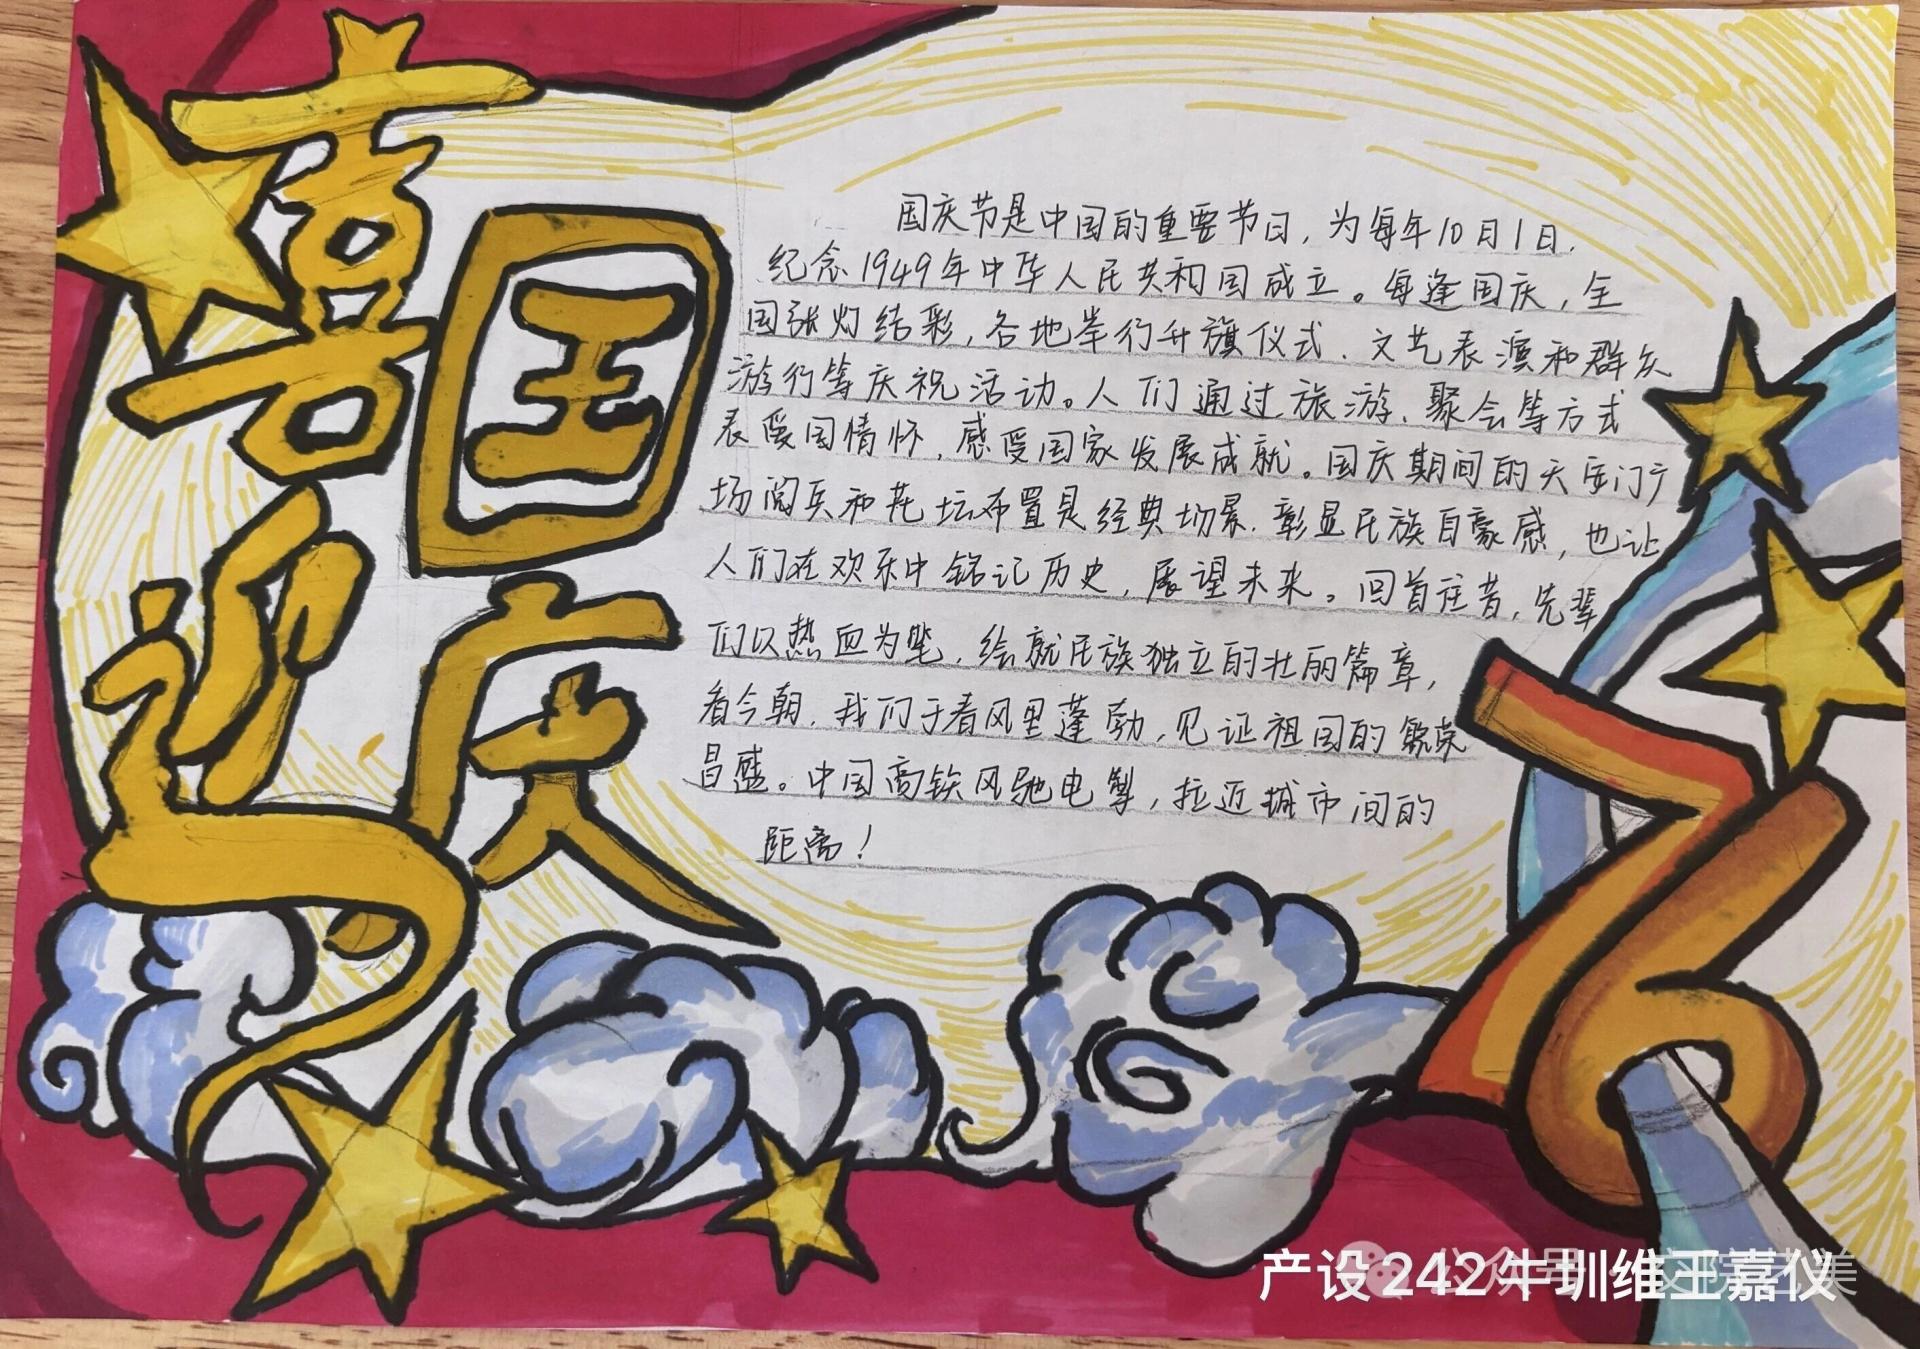 喜迎
国庆
国庆节是中国的重要节日，为每年10月1日，
纪念1949年中华人民共和国成立。每逢国庆，全
国张灯结彩，各地举行升旗仪式、文艺表演和群众
游行等庆祝活动。人们通过旅游、聚会等方式
表爱国情怀，感受国家发展成就。国庆期间的天安门广
场阅兵和花坛布置是经典场景，彰显民族自豪感，也让
人们在欢乐中铭记历史，展望未来。回首往昔，先辈
们以热血为笔，绘就民族独立的壮丽篇章，
看今朝，我们于春风里蓬勃，见证祖国的繁荣
昌盛。中国高铁风驰电掣，拉近城市间的
距离！
76
产设242牛圳维王嘉仪
公众号